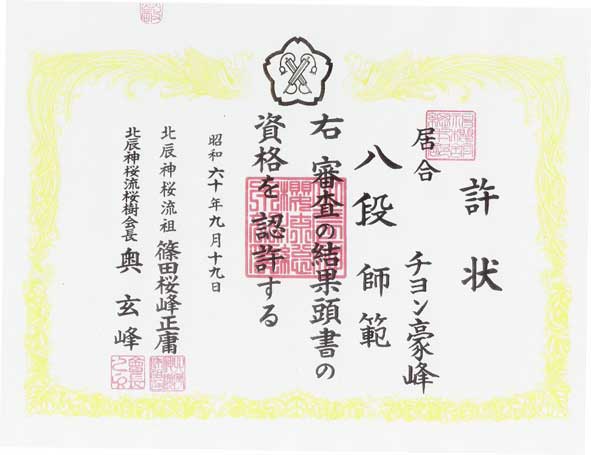 許状
チヨン豪峰
居合
八段師範
右 審査の結果頭書の
資格を認許する
昭和六十年九月十九日
北辰神桜流祖 篠田桜峰正庸
北辰神桜流桜樹会長 奥玄峰